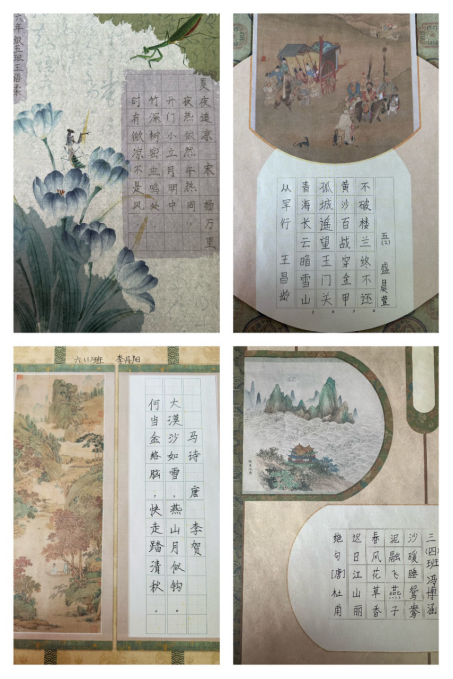 夏夜追凉 宋 杨万里
夜热依然午热同，
开门小立月明中。
竹深树密虫鸣处，
时有微凉不是风。
从军行 王昌龄
青海长云暗雪山
孤城遥望玉门关
黄沙百战穿金甲
不破楼兰终不还
五(2) 盛晨萱
六(1)班 李丹阳
马诗 唐 李贺
大漠沙如雪，燕山月似钩。
何当金络脑，快走踏清秋。
绝句[唐]杜甫
迟日江山丽
春风花草香
泥融飞燕子
沙暖睡鸳鸯
三(四)班 冯博涵